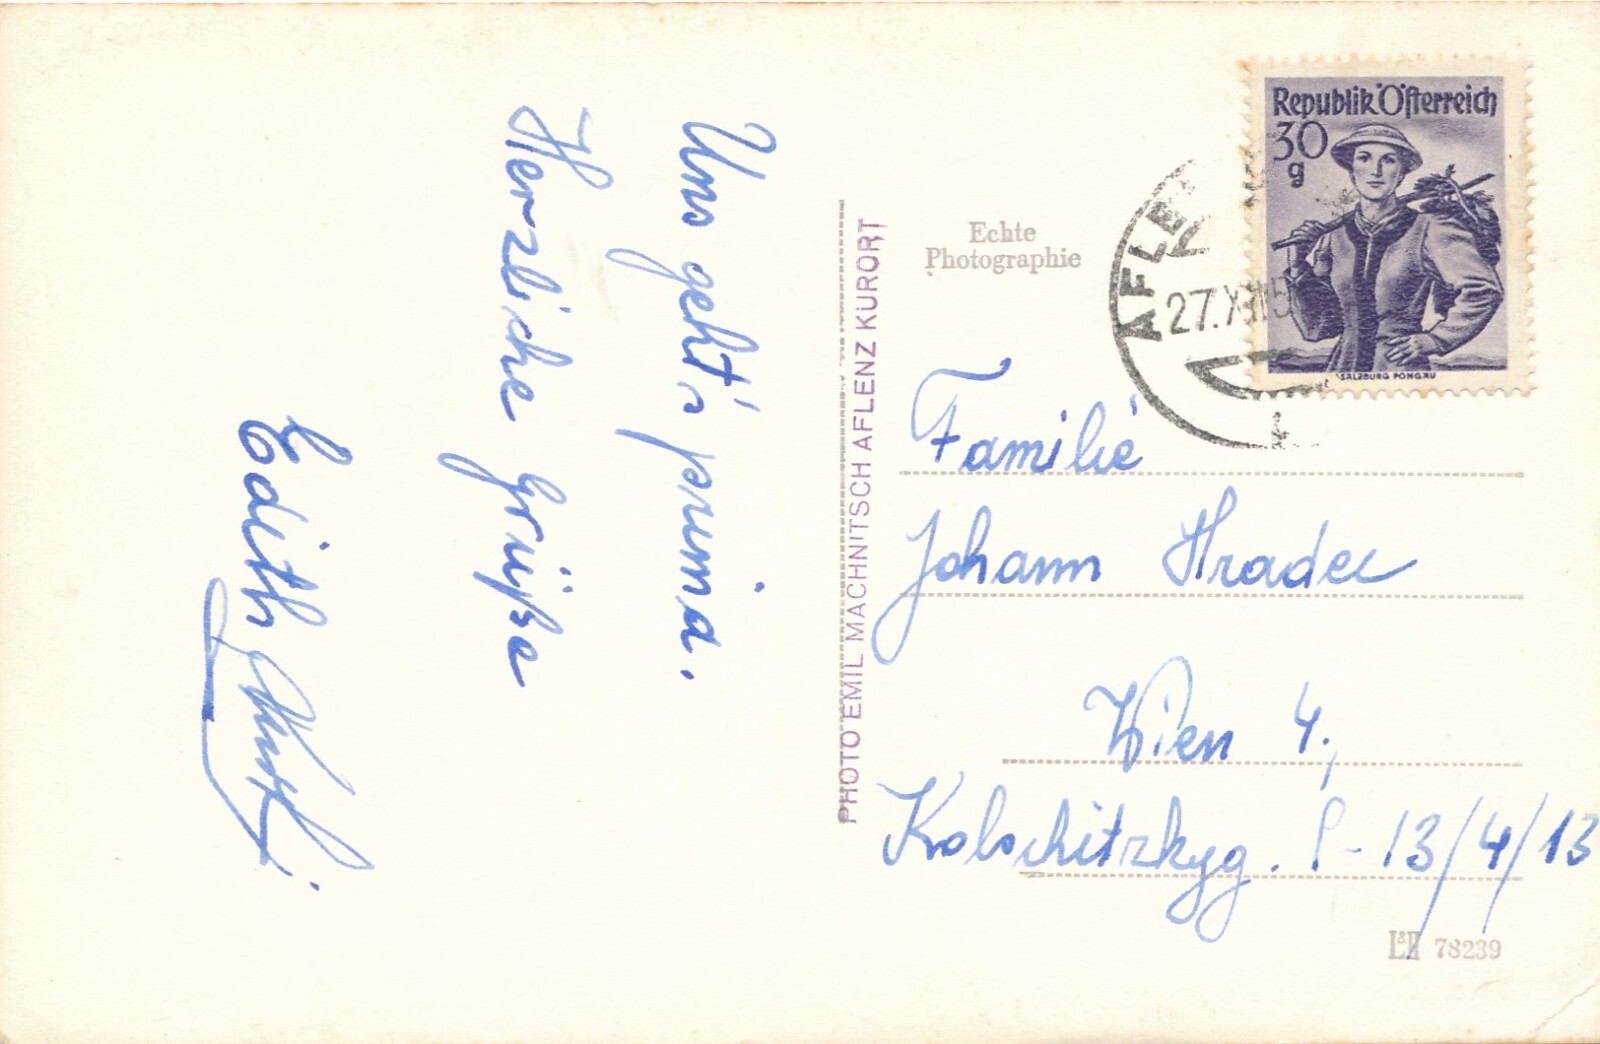 Uns geht's prima.
Herzliche Grüße
Edith
PHOTO EMIL MACHNITSCH AFLENZ KURORT
Echte
Photographie
Republik Österreich
30
g
SALZBURG PONGAU
AFLE
27.X
Familie
Johann Hradec
Wien 4.,
Kolschitzkyg. 9-13/4/13
L&H 78239